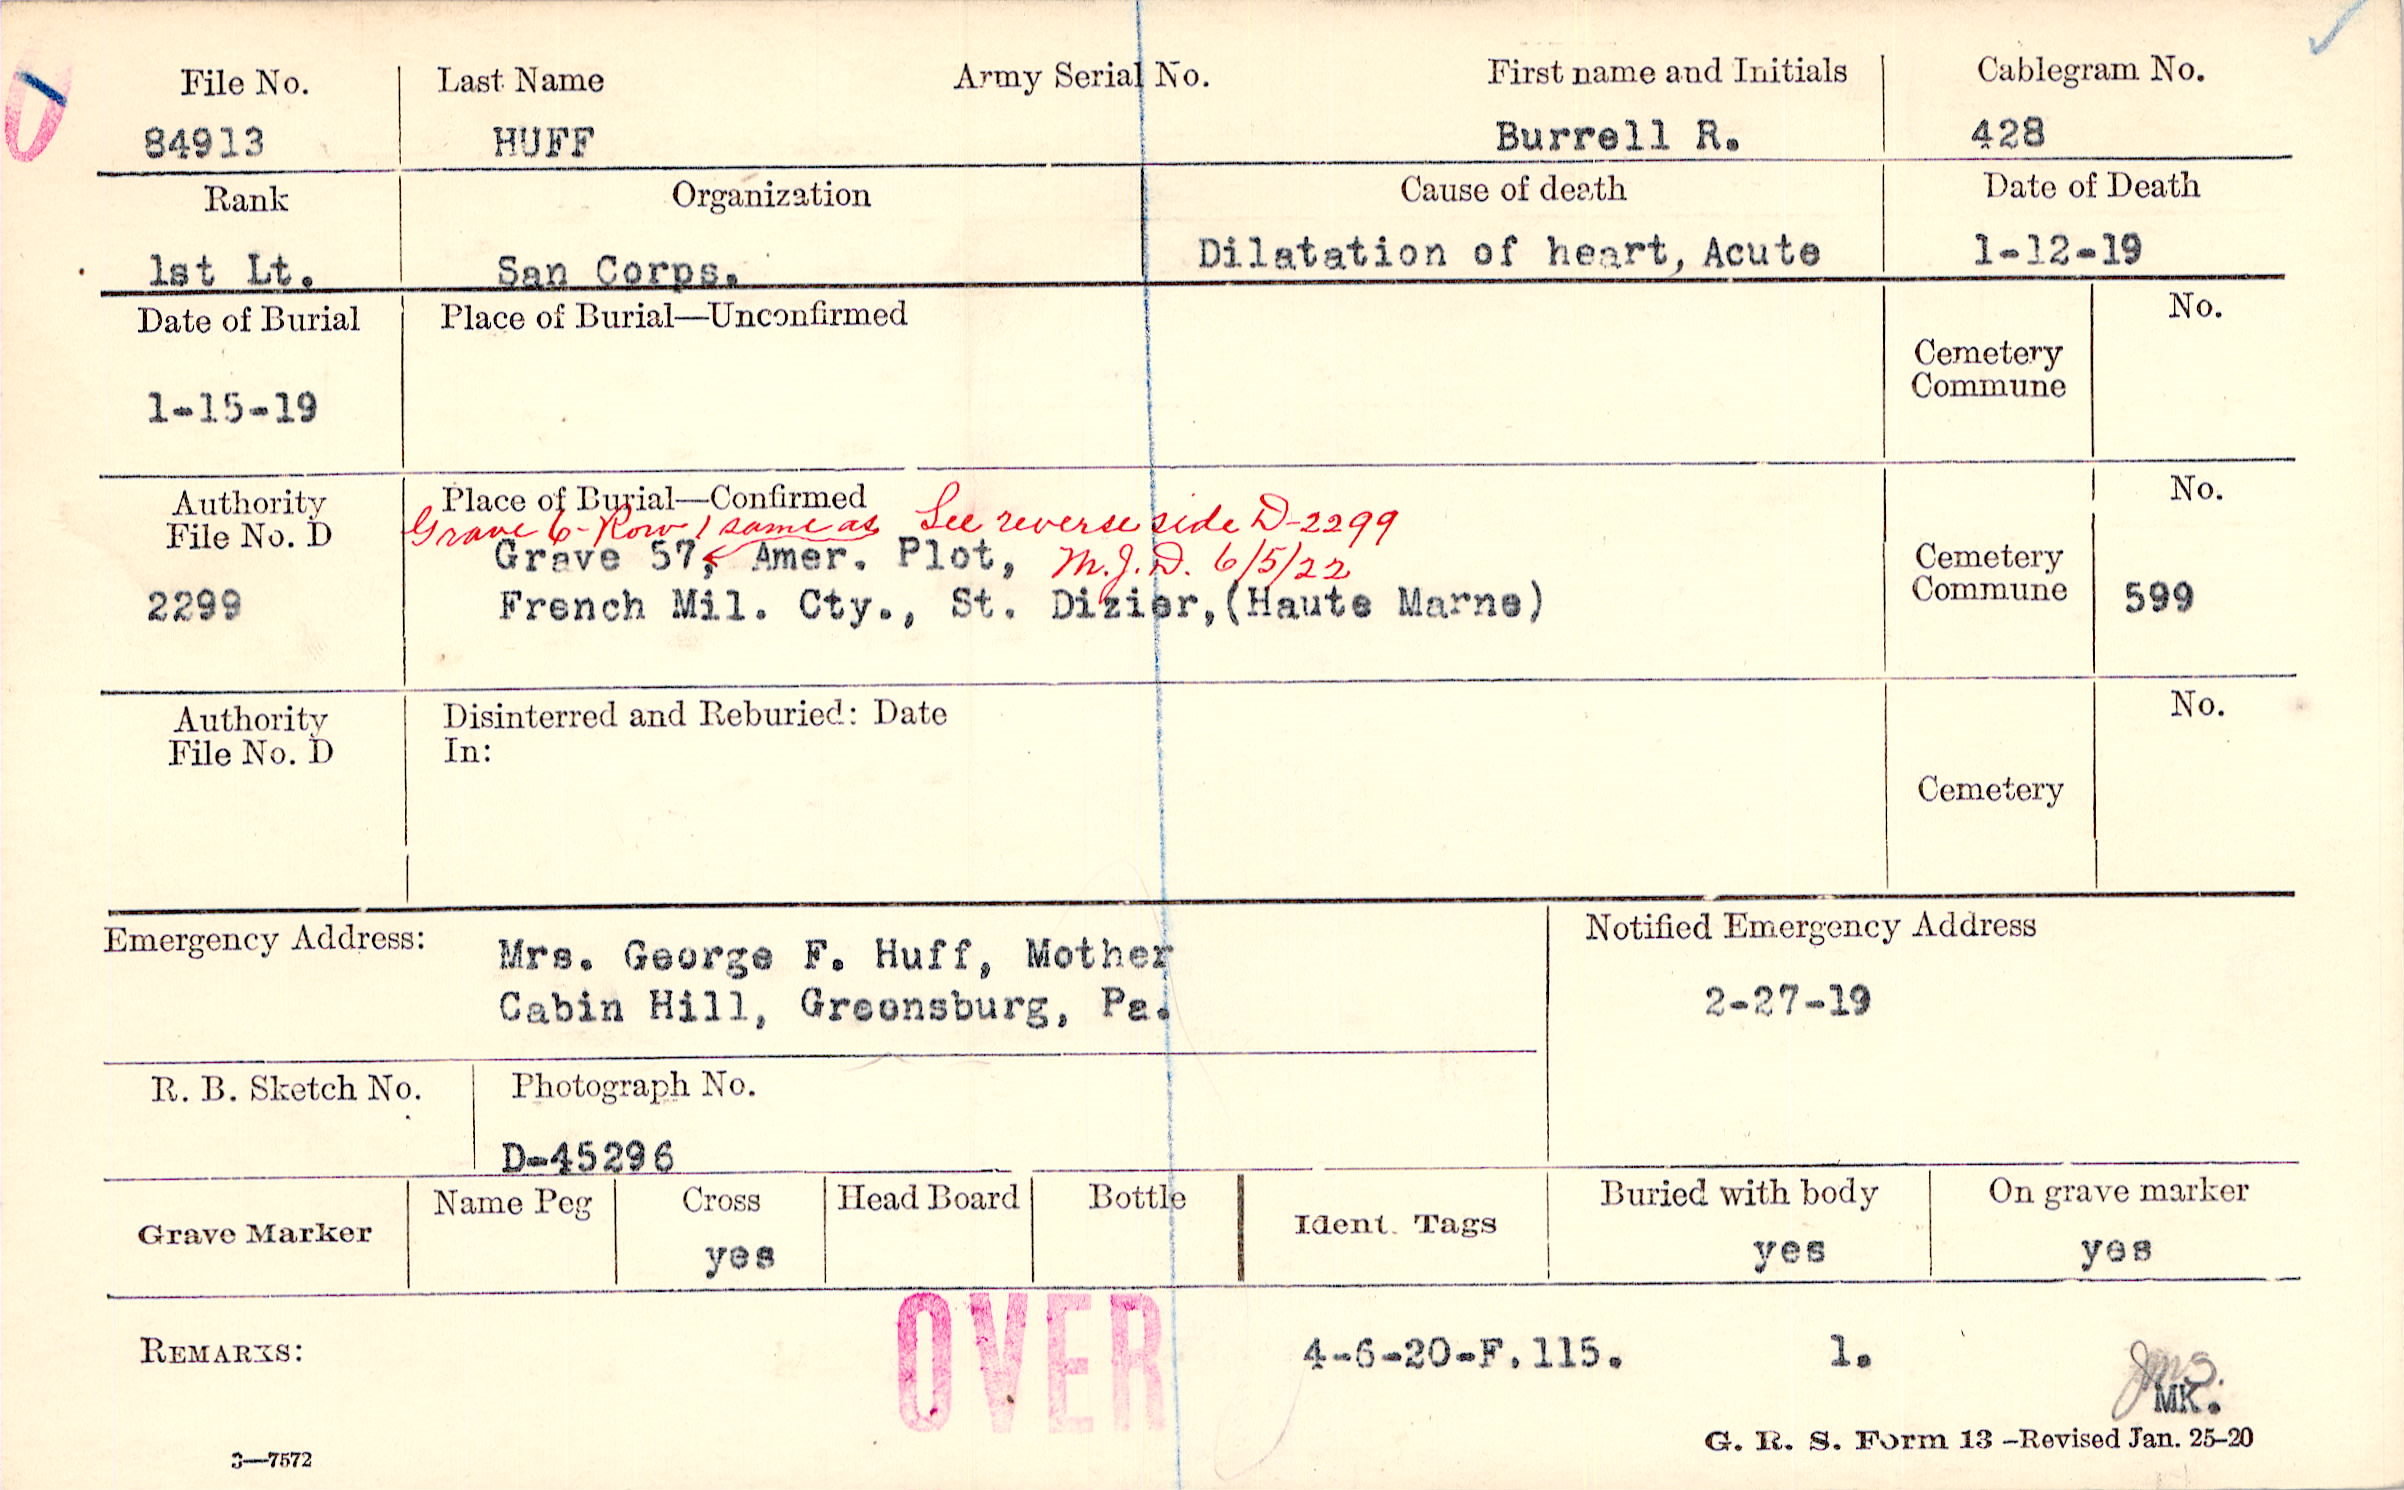 File No. Last Name Army Serial No. First name and Initials Cablegram No.
84913 HUFF Burrell R. 428
Rank Organization Cause of death Date of Death
1st Lt. San Corps. Dilatation of heart, Acute 1-12-19
Date of Burial Place of Burial—Unconfirmed No.
Cemetery
Commune
1-15-19
Authority Place of Burial—Confirmed No.
File No. D Grave 6-Row 1 same as See reverse side D-2299
Grave 57, Amer. Plot, M.J.D. 6/5/22 Cemetery
2299 French Mil. Cty., St. Dizier,(Haute Marne) Commune 599
Authority Disinterred and Reburied: Date No.
File No. D In:
Cemetery
Emergency Address: Mrs. George F. Huff, Mother Notified Emergency Address
Cabin Hill, Greensburg, Pa. 2-27-19
R. B. Sketch No. Photograph No.
D-45296
Grave Marker Name Peg Cross Head Board Bottle Ident. Tags Buried with body On grave marker
yes yes yes
REMARKS: OVER 4-6-20-F.115. 1.
MK.
3—7572 G. R. S. Form 13 -Revised Jan. 25-20